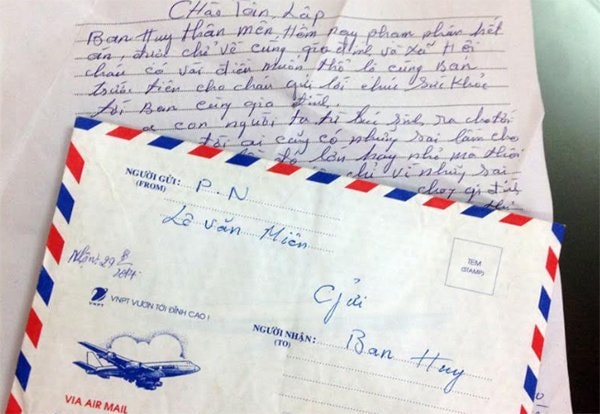 Chào Tân Lập
Ban Huy thân mến, Hôm nay phạm nhân hết
án, được chở về cùng gia đình và xã hội
cháu có vài điều muốn thổ lộ cùng Ban
trước tiên cho cháu gửi lời chúc sức khỏe
tới Ban cùng gia đình.
con người ta từ lúc sinh ra cho tới
tới ai cũng có những sai lầm cho
lớn hay nhỏ mà thôi
chỉ vì những sai
gia đình
NGƯỜI GỬI: P.N
(FROM)
Lê Văn Miên
TEM
(STAMP)
Nhận: 29/8
2014
VNPT
VNPT VƯƠN TỚI ĐỈNH CAO!
Gửi
NGƯỜI NHẬN: Ban Huy
(TO)
VIA AIR MAIL